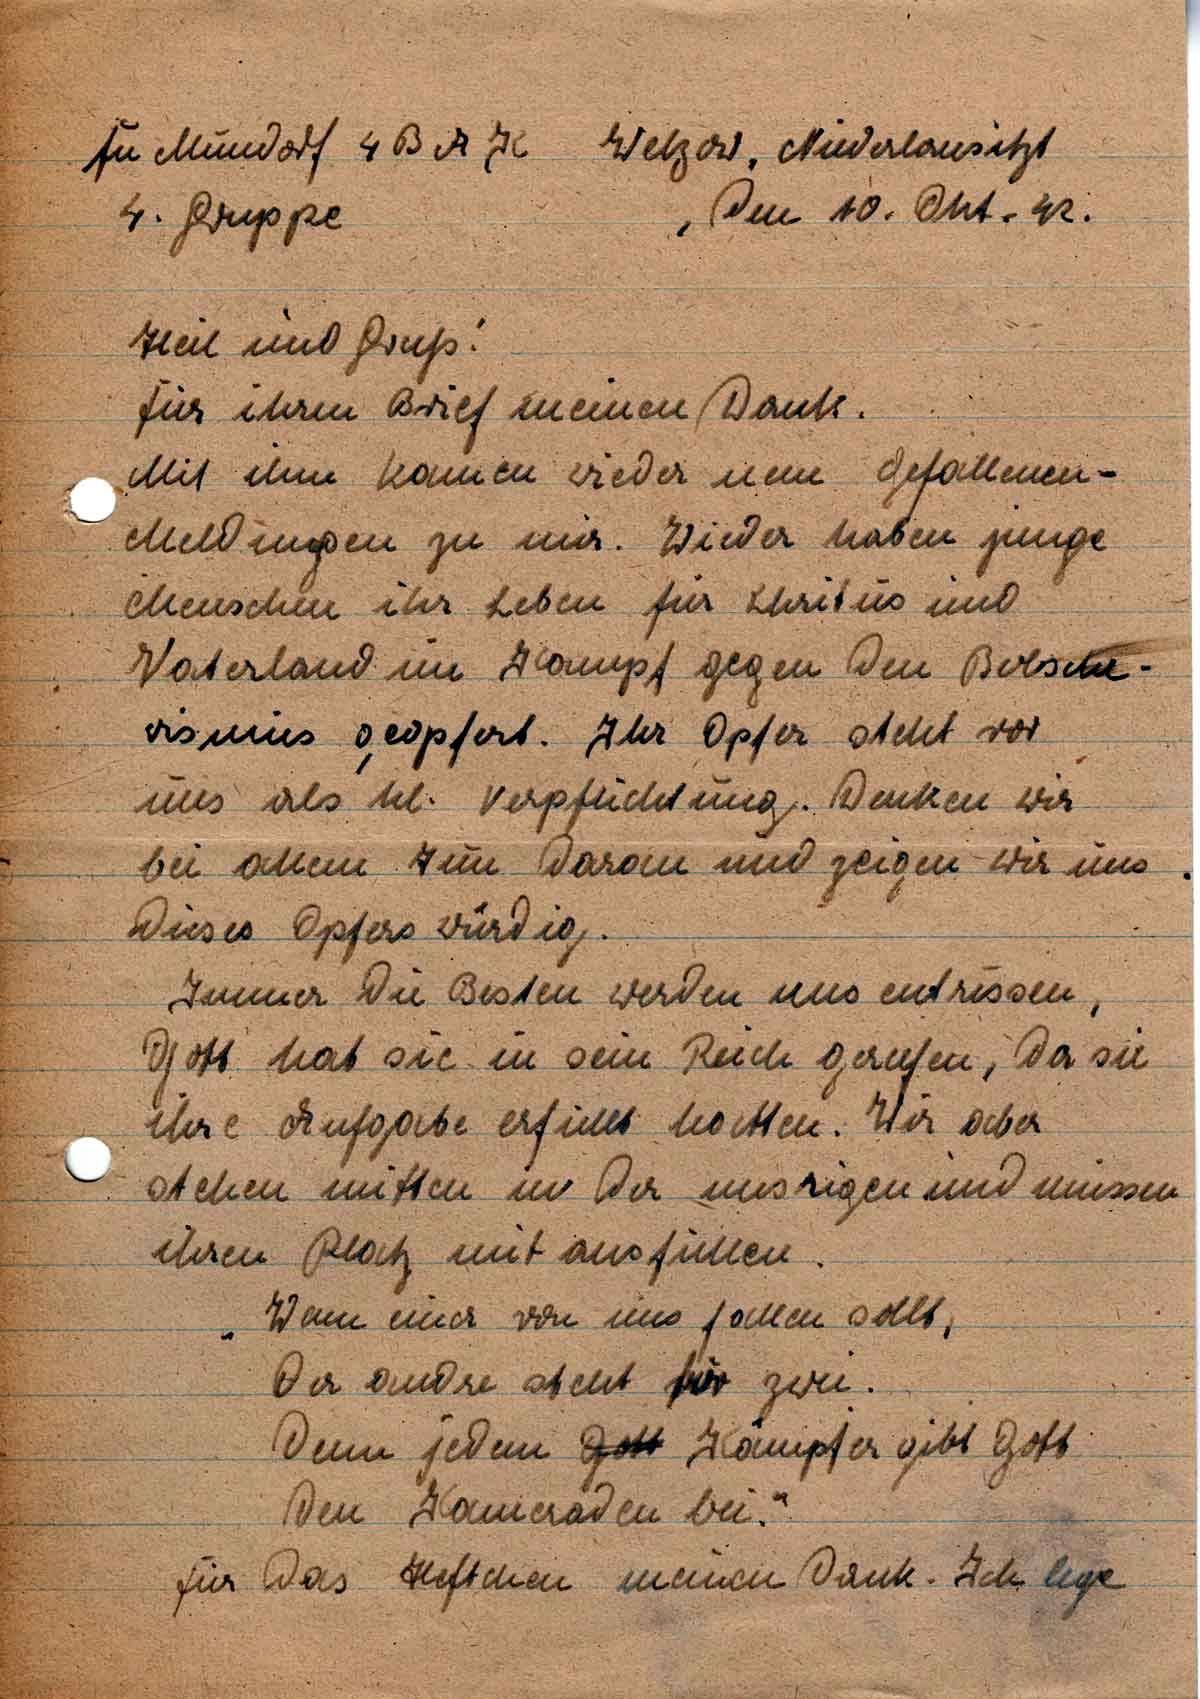 Fu Mundorf 4 B A K Welzow, Niederlausitzt
4. Gruppe , Den 10. Okt. 42.
Heil und Gruß!
Für ihren Brief meinen Dank.
Mit ihm kamen wieder neue Gefallenen-
Meldungen zu mir. Wieder haben junge
Menschen ihr Leben für Chritus und
Vaterland im Kampf gegen den Bolsche-
wismus geopfert. Ihr Opfer steht vor
uns als hl. Verpflichtung. Denken wir
bei allem Tun daran und zeigen wir uns
dieses Opfers würdig.
Immer die Besten werden uns entrissen,
Gott hat sie in sein Reich gerufen, da sie
ihre Aufgabe erfüllt hatten. Wir aber
stehen mitten in der unsrigen und müssen
ihren Platz mit ausfüllen.
„Wenn einer von uns fallen sollt,
Der andre steht für zwei.
Denn jedem Gott Kämpfer gibt Gott
Den Kameraden bei."
Für das Heftchen meinen Dank. Ich lege